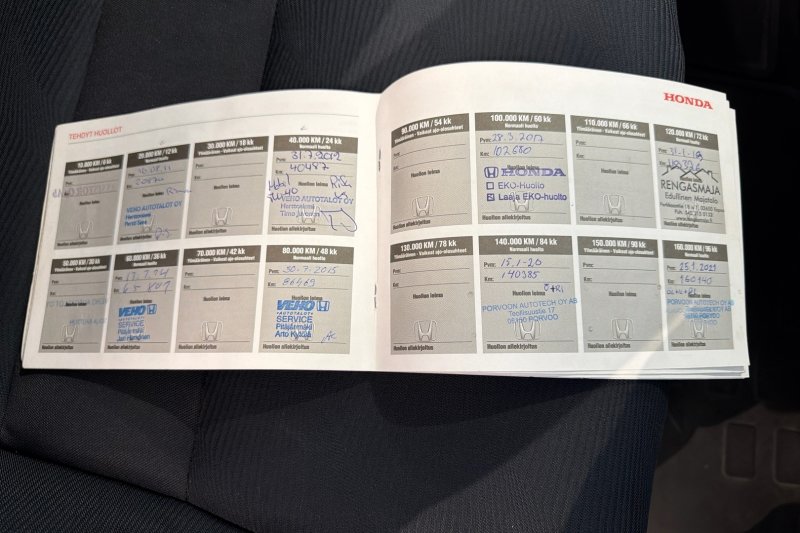 TEHDYT HUOLLOT
10.000 KM / 6 kk
Ylimääräinen - Vaikeat ajo-olosuhteet
Pvm:
Km:
Huollon allekirjoitus
20.000 KM / 12 kk
Normaali huolto
Pvm:
Km: 20870
VEHO AUTOTALOT OY
Herttoniemi
30.000 KM / 18 kk
Ylimääräinen - Vaikeat ajo-olosuhteet
Pvm:
Km:
Huollon leima
Huollon allekirjoitus
40.000 KM / 24 kk
Normaali huolto
Pvm: 31.7.2012
Km: 40487
VEHO AUTOTALOT OY
Herttoniemi
50.000 KM / 30 kk
Ylimääräinen - Vaikeat ajo-olosuhteet
Pvm:
Km:
Huollon leima
Huollon allekirjoitus
60.000 KM / 36 kk
Normaali huolto
Pvm:
Km:
VEHO
AUTOTALOT OY
SERVICE
Pitäjänmäki
Huollon allekirjoitus
70.000 KM / 42 kk
Ylimääräinen - Vaikeat ajo-olosuhteet
Pvm:
Km:
Huollon leima
Huollon allekirjoitus
80.000 KM / 48 kk
Normaali huolto
Pvm: 30.7.2015
Km: 86469
Huollon leima
VEHO
AUTOTALOT OY
SERVICE
Pitäjänmäki
Huollon allekirjoitus
HONDA
90.000 KM / 54 kk
Ylimääräinen - Vaikeat ajo-olosuhteet
Pvm:
Km:
Huollon leima
Huollon allekirjoitus
100.000 KM / 60 kk
Normaali huolto
Pvm: 28.3.2017
Km: 102680
HONDA
EKO-Huolto
Laaja EKO-huolto
Huollon allekirjoitus
110.000 KM / 66 kk
Ylimääräinen - Vaikeat ajo-olosuhteet
Pvm:
Km:
Huollon leima
Huollon allekirjoitus
120.000 KM / 72 kk
Normaali huolto
Pvm: 31.1.18
Km:
RENGASMAJA
Edullinen Majatalo
130.000 KM / 78 kk
Ylimääräinen - Vaikeat ajo-olosuhteet
Pvm:
Km:
Huollon leima
Huollon allekirjoitus
140.000 KM / 84 kk
Normaali huolto
Pvm: 15.1-20
Km: 140385
Huollon leima
PORVOON AUTOTECH OY AB
Teollisuustie 17
06150 PORVOO
Huollon allekirjoitus
150.000 KM / 90 kk
Ylimääräinen - Vaikeat ajo-olosuhteet
Pvm:
Km:
Huollon leima
Huollon allekirjoitus
160.000 KM / 96 kk
Normaali huolto
Pvm: 25.1.2021
Km: 160140
PORVOON AUTOTECH OY AB
Teollisuustie 17
06150 PORVOO
Huollon allekirjoitus